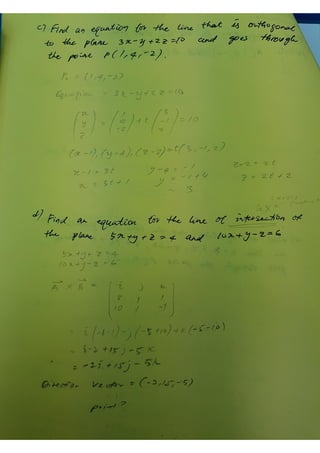 c) Find an equation for the line that is orthogonal
to the plane 3x-y+2z=10 and goes through
the point P(1,4,-2).
P₀ = (1,4,-2)
Equation = 3x-y+2z=10
(x-1), (y-4), (z-2) = t(3,-1,2)
x-1=3t
x = 3t+1
z = 2t+2
d) Find an equation for the line of intersection of
the plane 5x+y+z=4 and 10x+y-z=6
5x+y+z=4
10x+y-z=6
i j k
10 1 -1
= i(-1-1)-j(-5-10)+k(5-10)
= -2i+15j-5k
Direction vector = (-2,15,-5)
point?